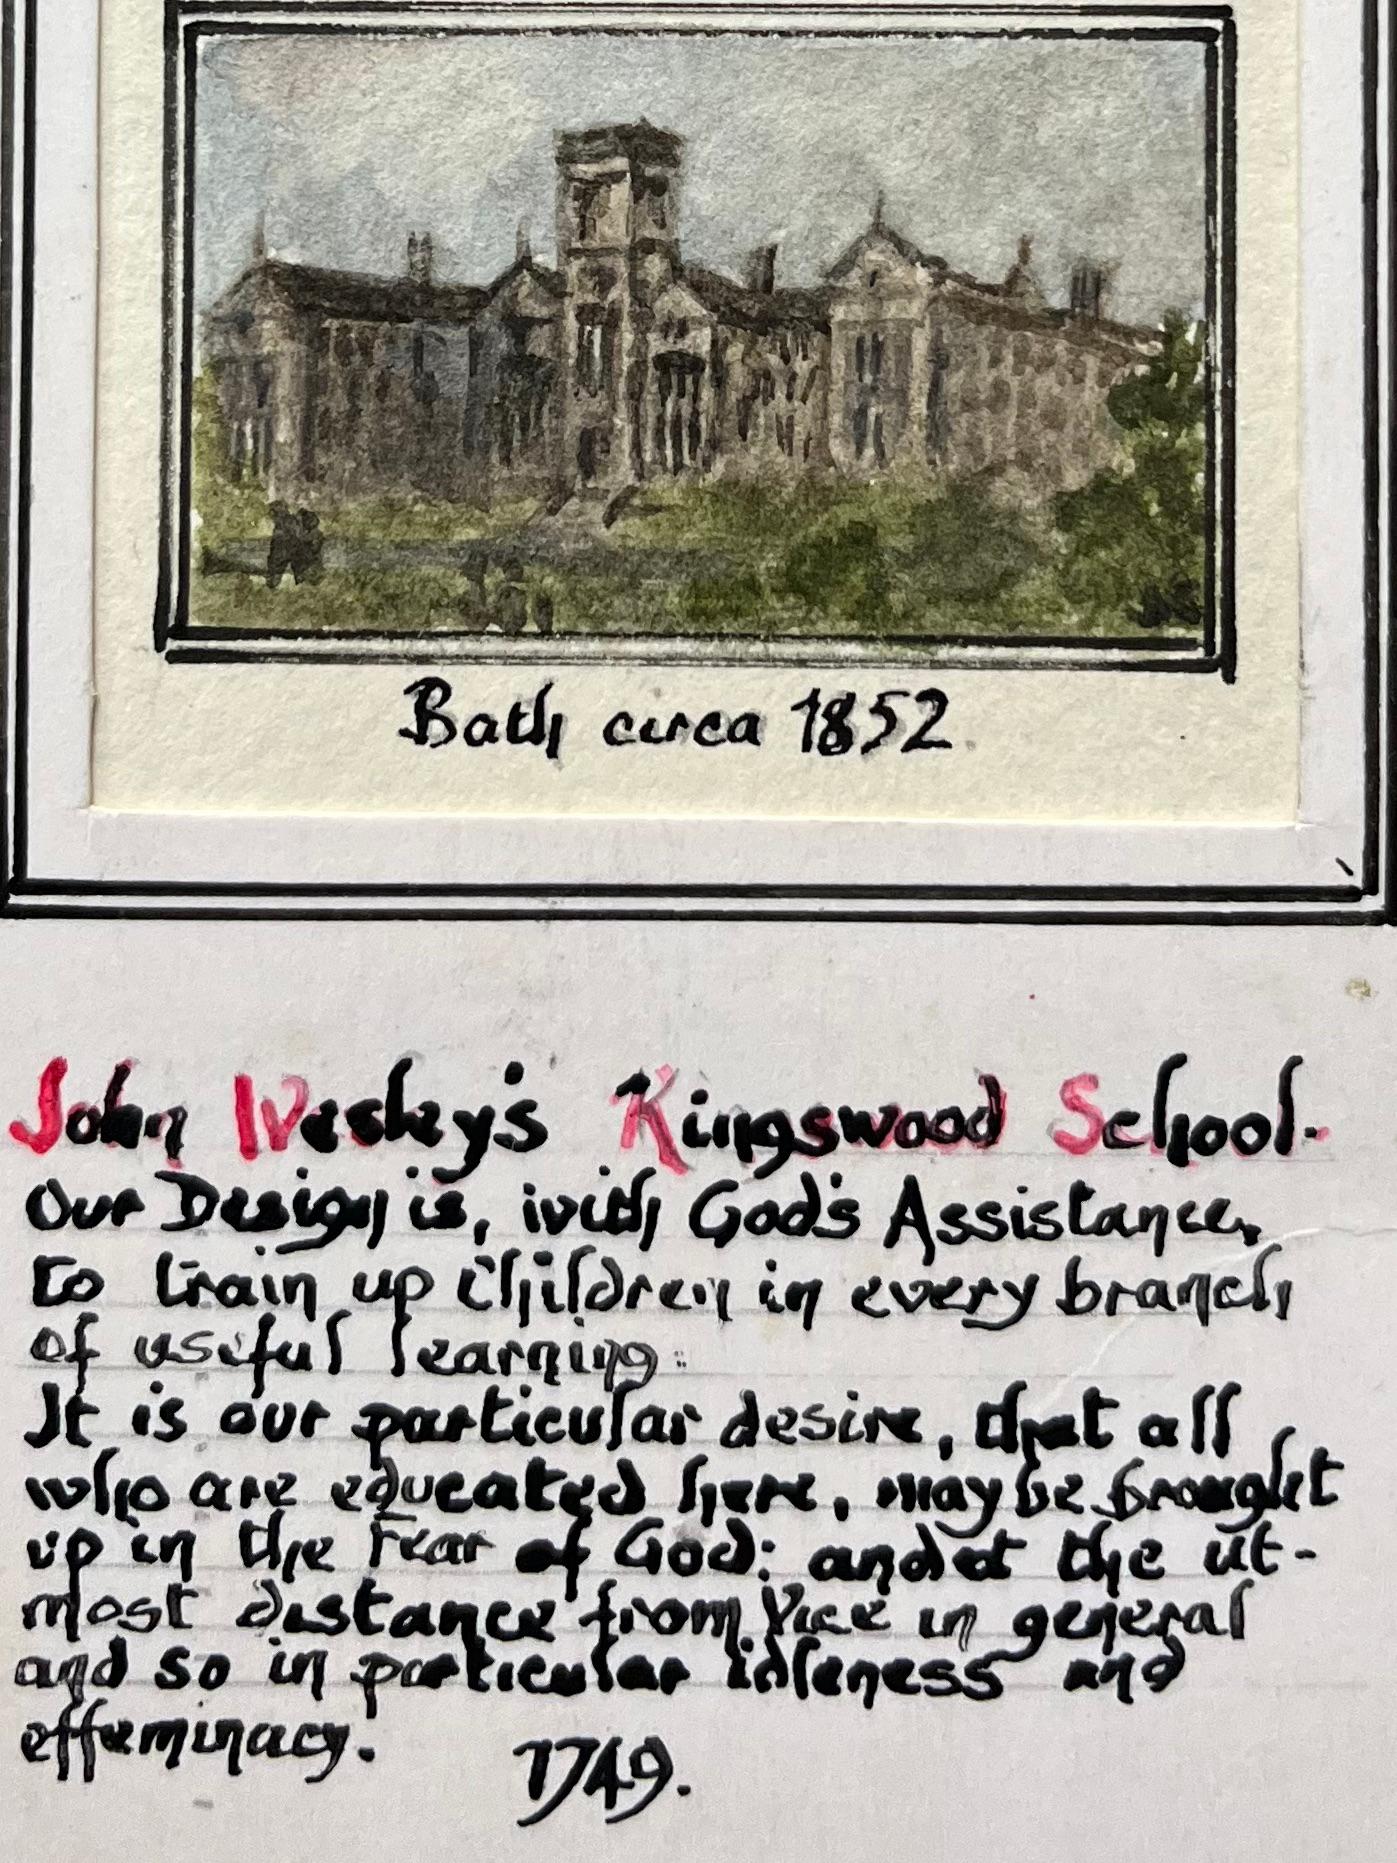 Bath circa 1852.
John Wesley's Kingswood School.
Our Design is, with God's Assistance,
to train up Children in every branch
of useful learning:
It is our particular desire, that all
who are educated here, may be brought
up in the Fear of God: and at the ut-
most distance from Vice in general
and so in particular idleness and
effeminacy.
1749.